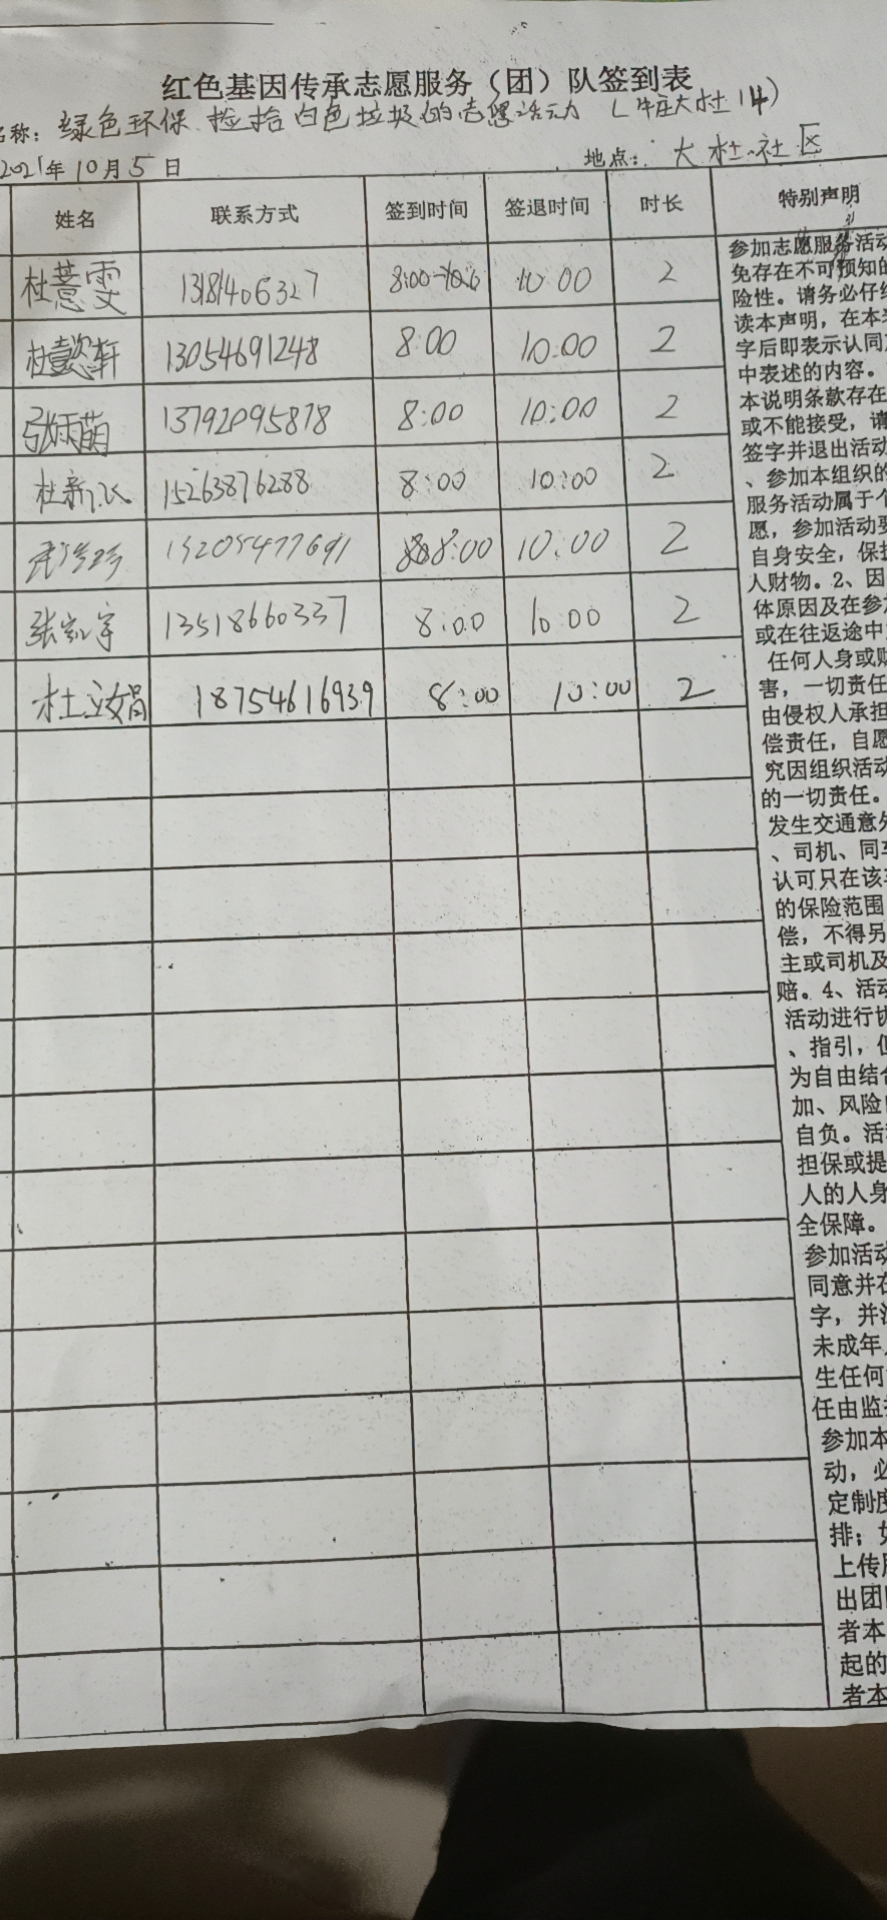 红色基因传承志愿服务（团）队签到表
名称：绿色环保 捡拾白色垃圾的志愿活动（牛庄大杜 14）
2021年10月5日 地点：大杜社区
姓名 联系方式 签到时间 签退时间 时长 特别声明
杜薏雯 13181406327 8:00 10:00 2
杜懿轩 13054691248 8:00 10:00 2
张炳萌 13792095878 8:00 10:00 2
杜新 15263876288 8:00 10:00 2
15205477691 8:00 10:00 2
张宇 13518660337 8:00 10:00 2
杜立娟 18754616939 8:00 10:00 2
参加志愿服务活动
免存在不可预知的
险性。请务必仔细
读本声明，在本
字后即表示认同
中表述的内容。
本说明条款存在
或不能接受，请
签字并退出活动
、参加本组织的
服务活动属于个
愿，参加活动要
自身安全，保护
人财物。2、因
体原因及在参加
或在往返途中
任何人身或财
害，一切责任
由侵权人承担
偿责任，自愿
究因组织活动
的一切责任。
发生交通意外
、司机、同车
认可只在该车
的保险范围
偿，不得另
主或司机及
赔。4、活动
活动进行协
、指引，但
为自由结合
加、风险
自负。活动
担保或提
人的人身
全保障。
参加活动
同意并在
字，并
未成年人
生任何
任由监
参加本
动，必
定制度
排；如
上传
出团
者本
起的
者本